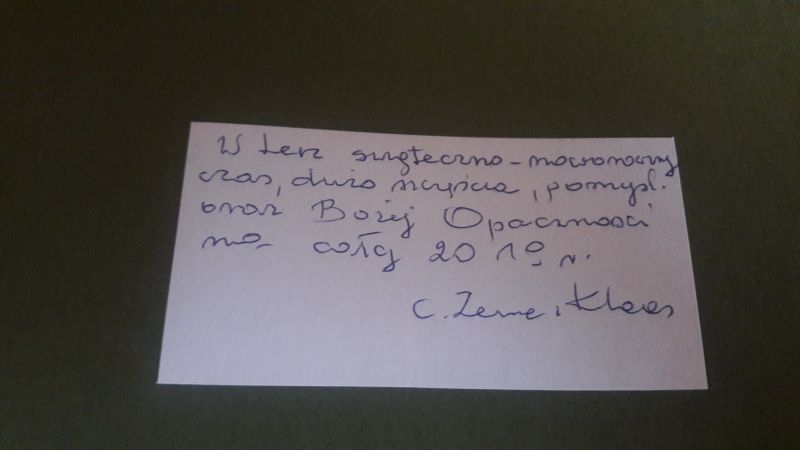 W ten świąteczno-noworoczny
czas, dużo szczęścia, pomyśl.
oraz Bożej Opaczności
na cały 2019 r.
C. Zenia i Klaus